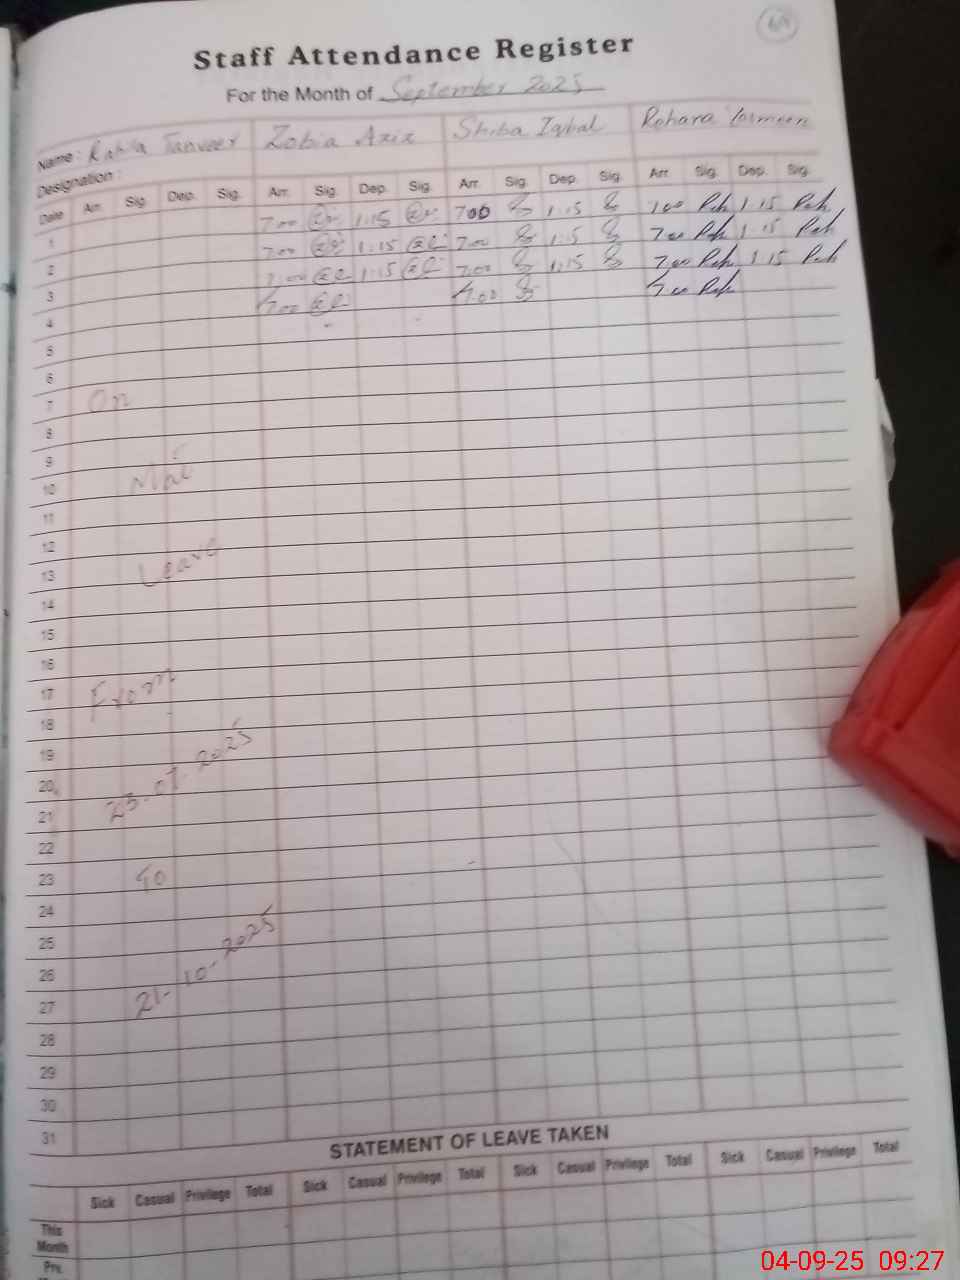 Staff Attendance Register
For the Month of September 2025
Name : Tanveer Zobia Aziz Shiba Iqbal
Designation :
Date Arr. Sig. Dep. Sig. Arr. Sig. Dep. Sig. Arr. Sig. Dep. Sig. Arr. Sig. Dep. Sig.
1 7.00 1:15 7.00 1:15 7.00 1:15
2 7.00 1:15 7.00 1:15 7.00 1:15
3 7.00 1:15 7.00 1:15 7.00 1:15
4 7.00 7.00 7.00
5
6
7 On
8
9
10
11
12
13 Leave
14
15
16
17 From
18
19
20
21 23-07-2025
22
23 To
24
25
26
27 21-10-2025
28
29
30
31
STATEMENT OF LEAVE TAKEN
Sick Casual Privilege Total Sick Casual Privilege Total Sick Casual Privilege Total Sick Casual Privilege Total
This
Month
Prv.
04-09-25 09:27